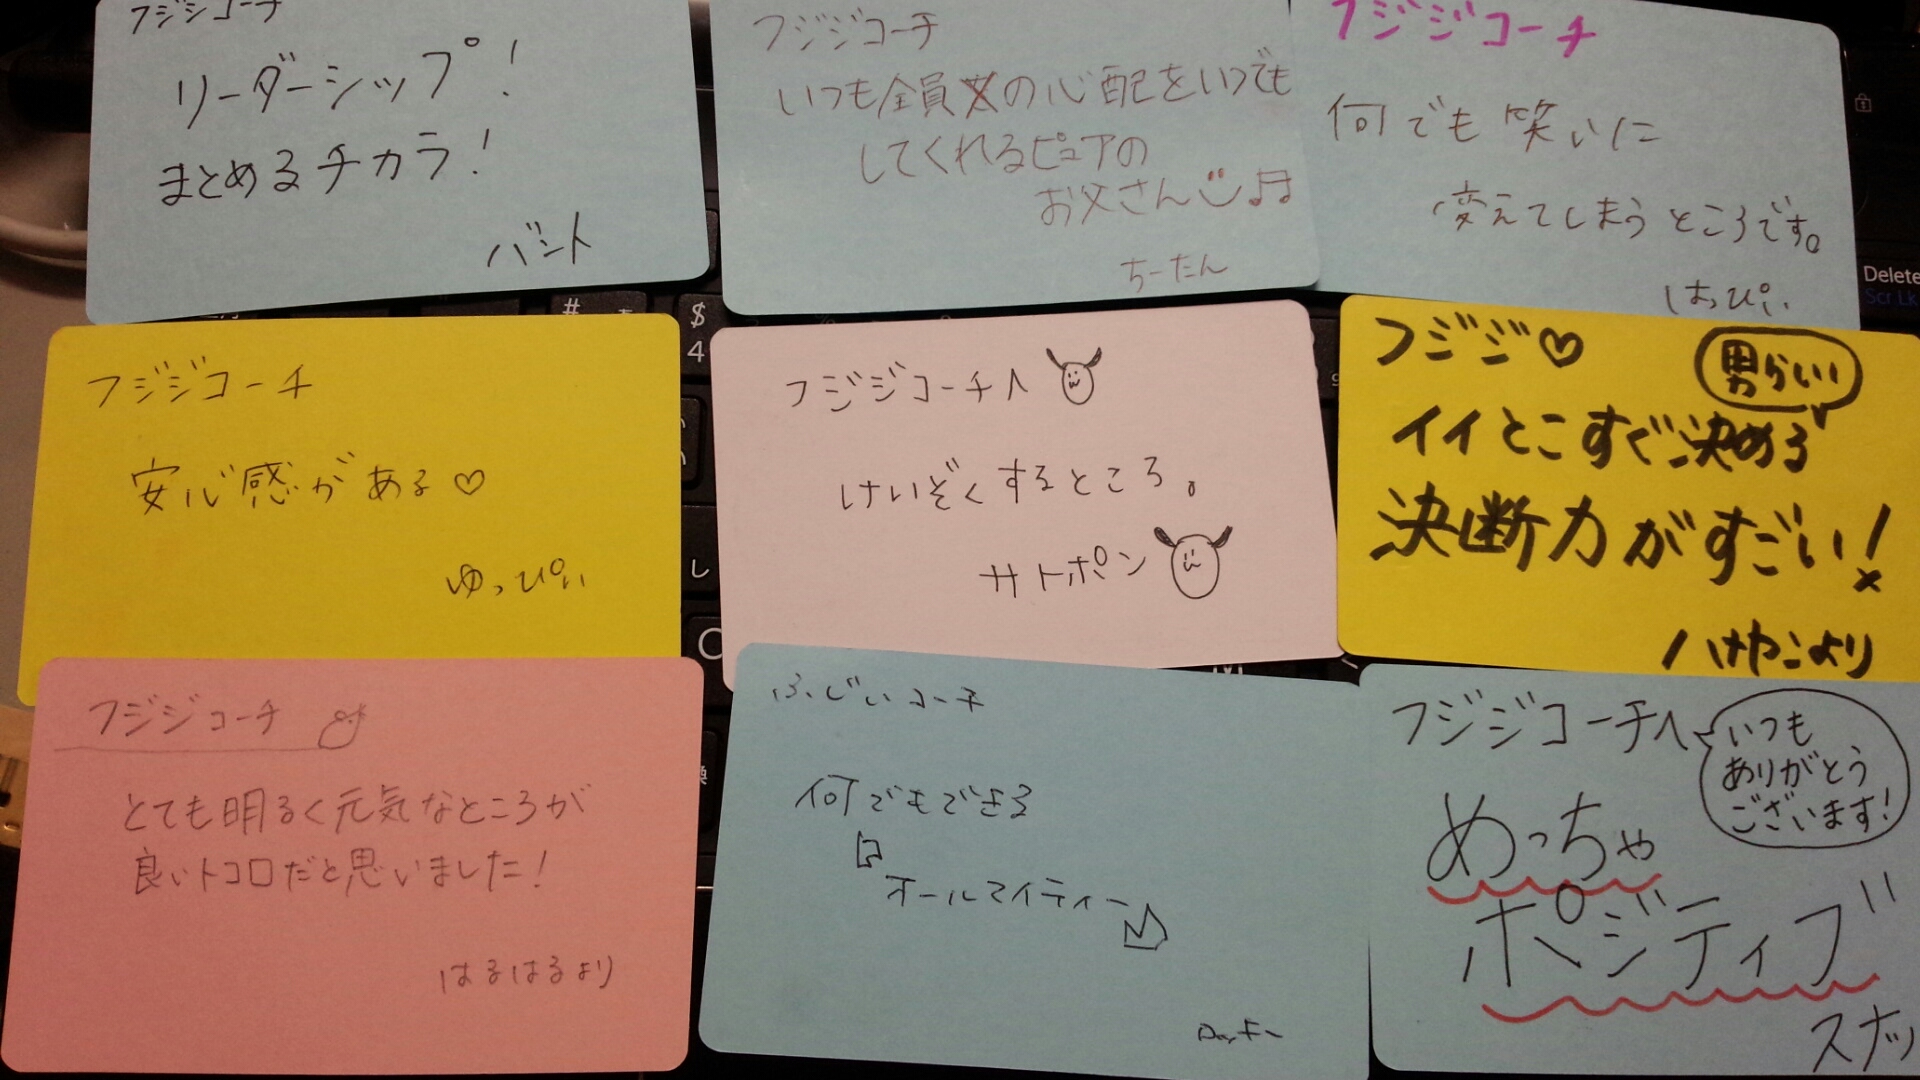 フジジコーチ
リーダーシップ!
まとめるチカラ!
バント
フジジコーチ
いつも全員の心配をいつでも
してくれるピュアの
お父さん
ちーたん
フジジコーチ
何でも笑いに
変えてしまうところです。
はっぴぃ
フジジコーチ
安心感がある♡
ゆっぴぃ
フジジコーチへ
けいぞくするところ。
サトポン
フジジ♡
男らしい
イイとこすぐ決める
決断力がすごい!
より
フジジコーチ
とても明るく元気なところが
良いトコロだと思いました!
はるはるより
ふじじぃコーチ
何でもできる
オールマイティー
フジジコーチへ
いつも
ありがとう
ございます!
めっちゃ
ポジティブ
スナッ
#
$
4
し
Delete
Scr Lk